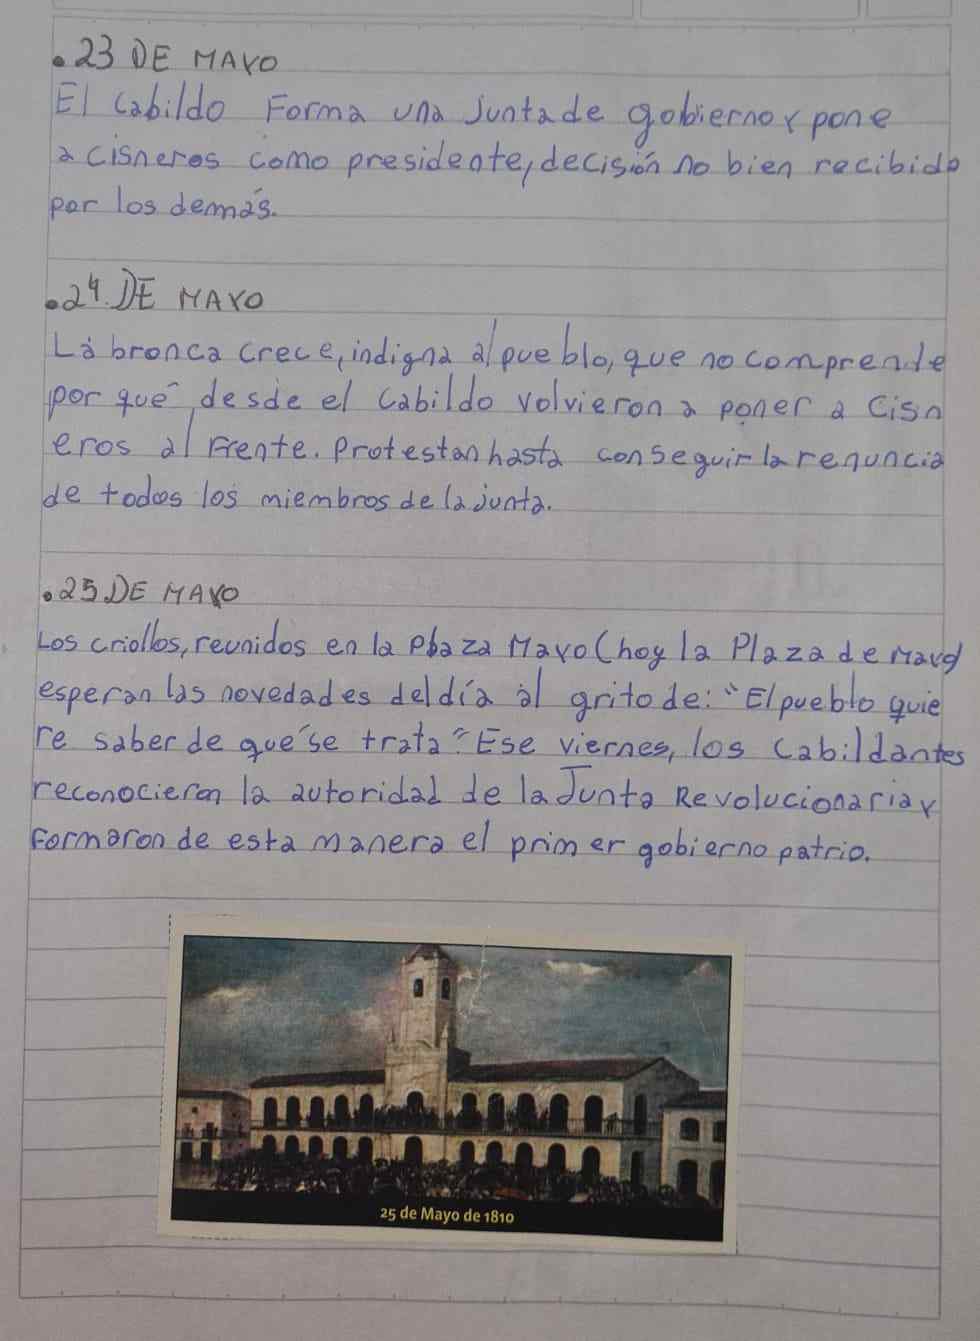 . 23 DE MAYO
El Cabildo Forma una Junta de gobierno y pone
a cisneros como presidente, decisión no bien recibida
por los demás.
. 24. DE MAYO
La bronca crece, indigna al pueblo, que no comprende
por qué desde el Cabildo volvieron a poner a Cisn
eros al Frente. Protestan hasta conseguir la renuncia
de todos los miembros de la junta.
. 25 DE MAYO
Los criollos, reunidos en la Plaza Mayo (hoy la Plaza de Mayo)
esperan las novedades del día al grito de: "El pueblo quie
re saber de qué se trata" Ese viernes, los Cabildantes
reconocieron la autoridad de la Junta Revolucionaria y
Formaron de esta manera el primer gobierno patrio.
25 de Mayo de 1810